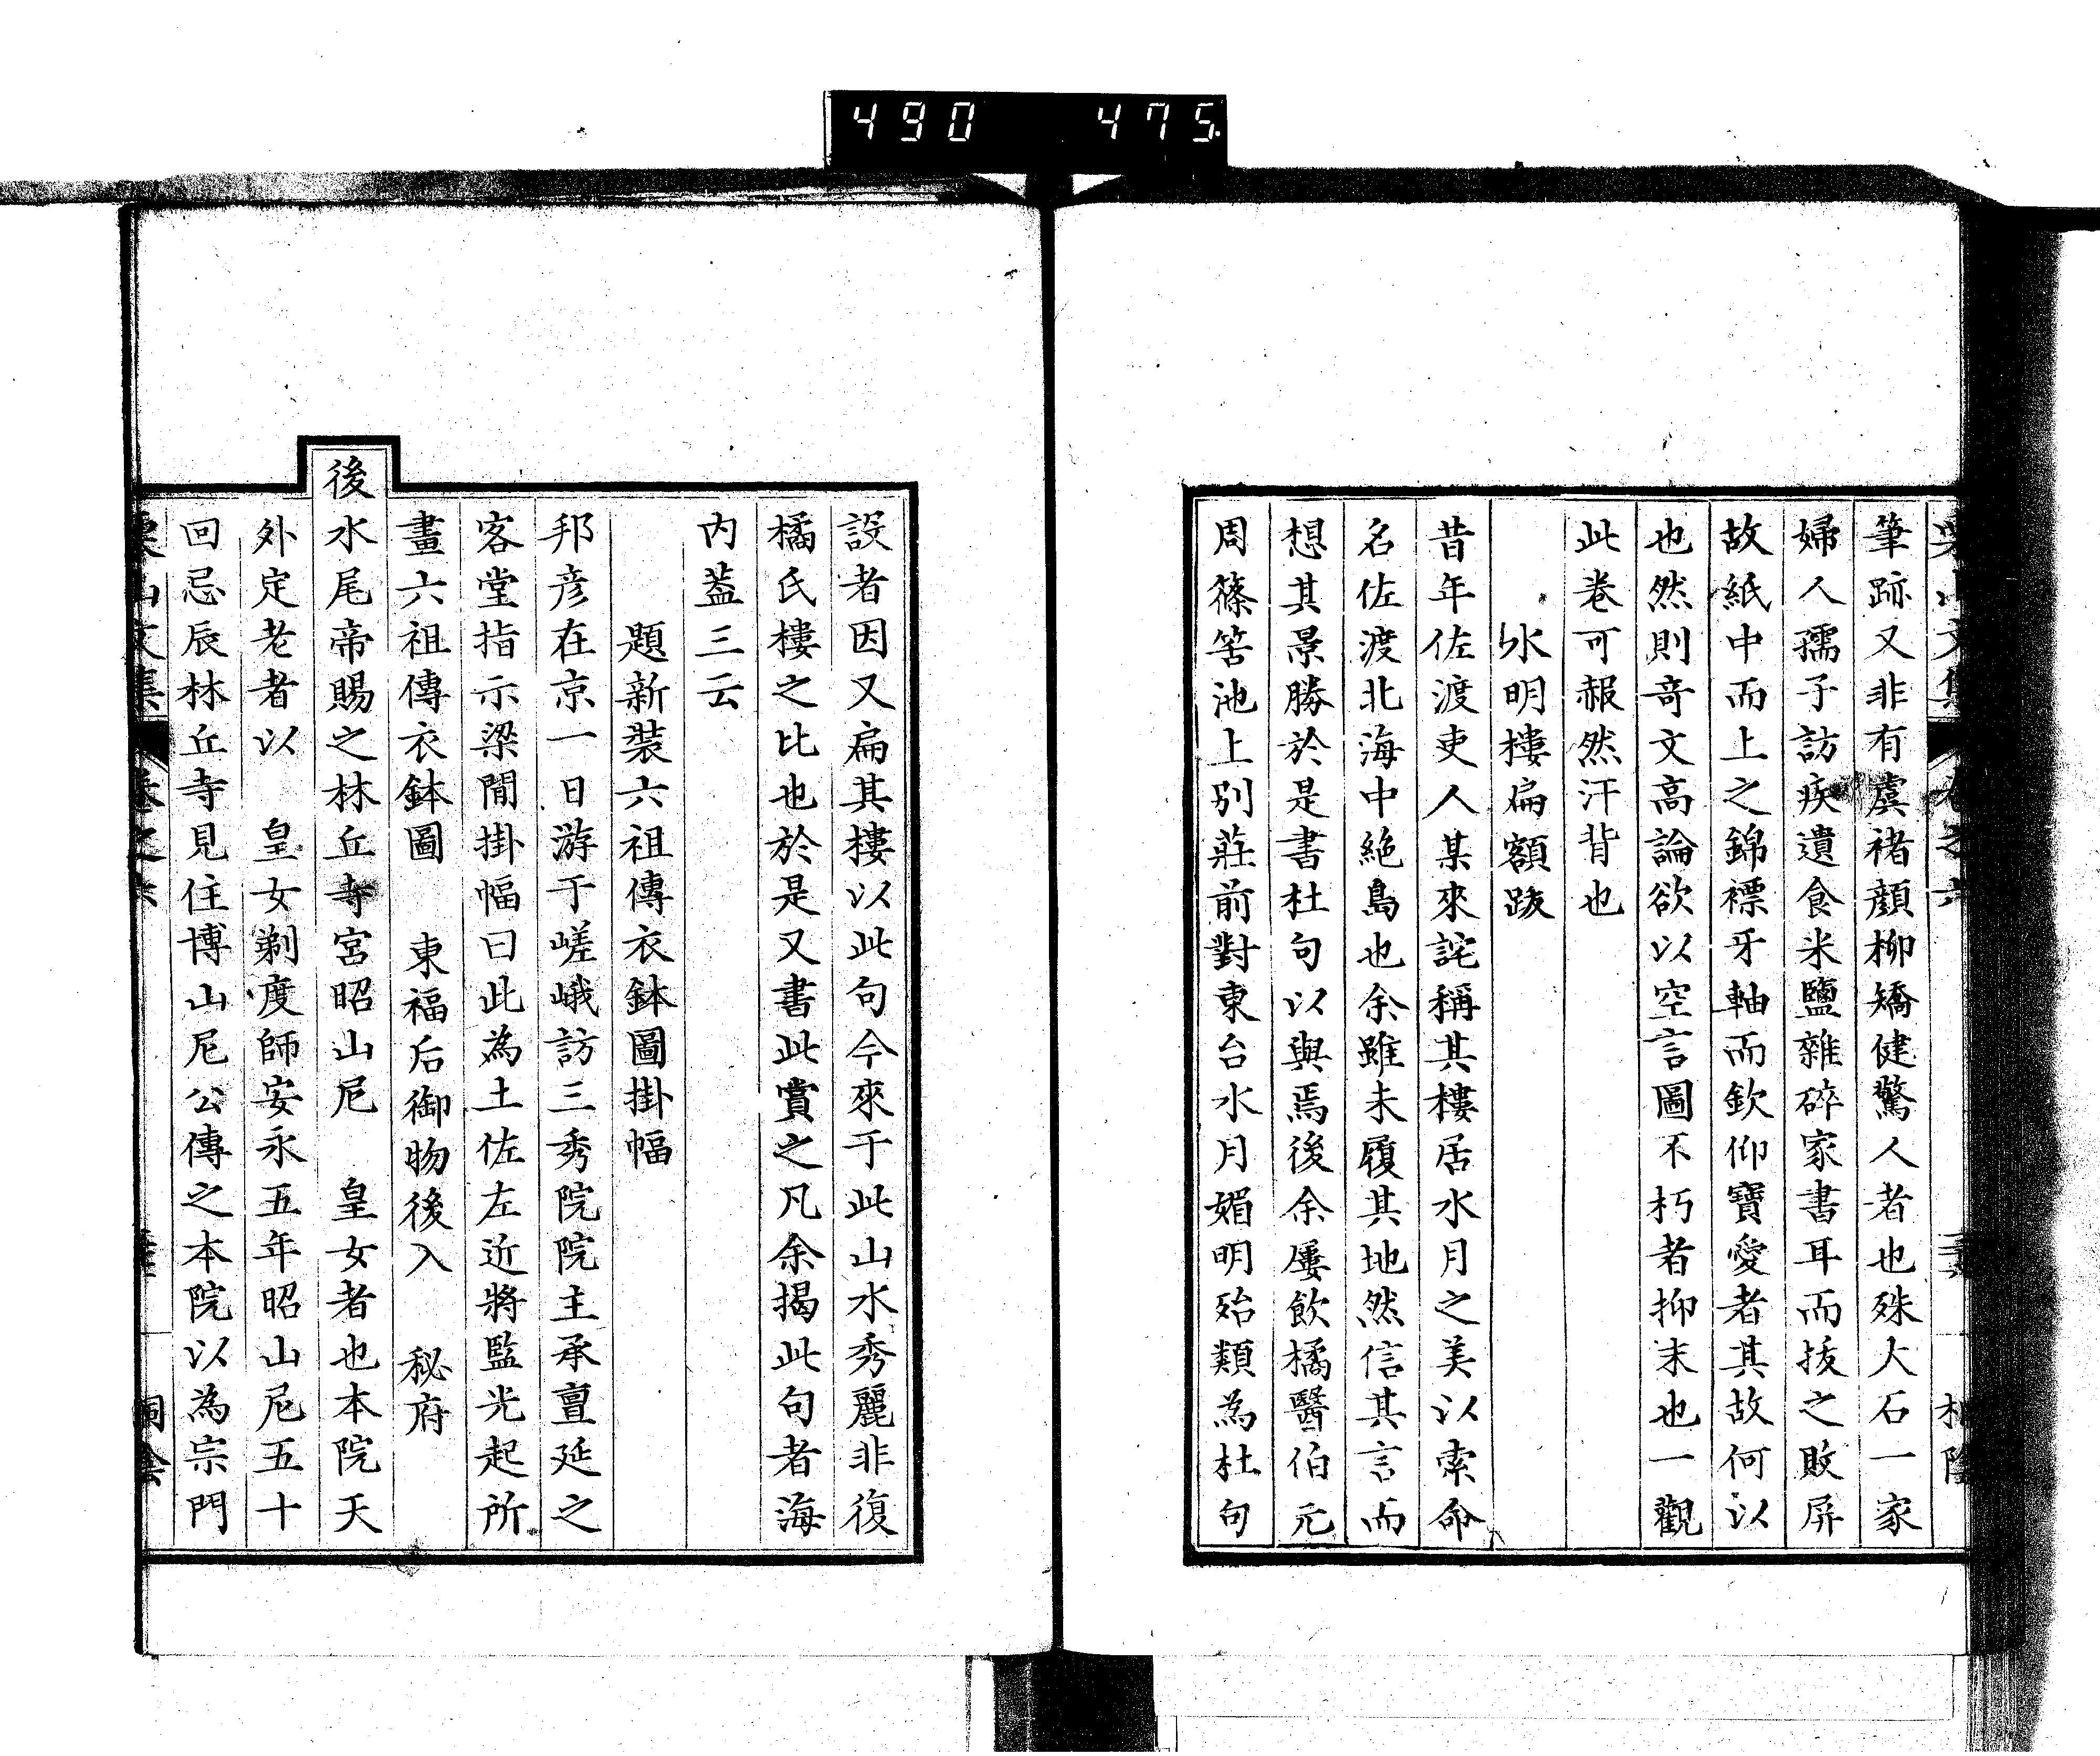 490 475
筆跡又非有虞褚顔柳矯健驚人者也殊大石一家
婦人孺子訪疾遺食米鹽雜碎家書耳而拔之敗屏
故紙中而上之錦褾牙軸而欽仰寶愛者其故何以
也然則竒文高論欲以空言圖不朽者抑末也一觀
此卷可赧然汗背也
水明樓扁額跋
昔年佐渡吏人某來詫稱其樓居水月之美以索命
名佐渡北海中絶島也余雖未履其地然信其言而
想其景勝於是書杜句以與焉後余屢飲橘醫伯元
周篠箬池上別莊前對東台水月媚明殆類為杜句
設者因又扁其樓以此句今來于此山水秀麗非復
橘氏樓之比也於是又書此賞之凡余揭此句者海
内葢三云
題新裝六祖傳衣鉢圖掛幅
邦彦在京一日游于嵯峨訪三秀院院主承亶延之
客堂指示梁間掛幅曰此為土佐左近將監光起所
畫六祖傳衣鉢圖 東福后御物後入 秘府
後水尾帝賜之林丘寺宮昭山尼 皇女者也本院天
外定老者以 皇女剃度師安永五年昭山尼五十
回忌辰林丘寺見住博山尼公傳之本院以為宗門